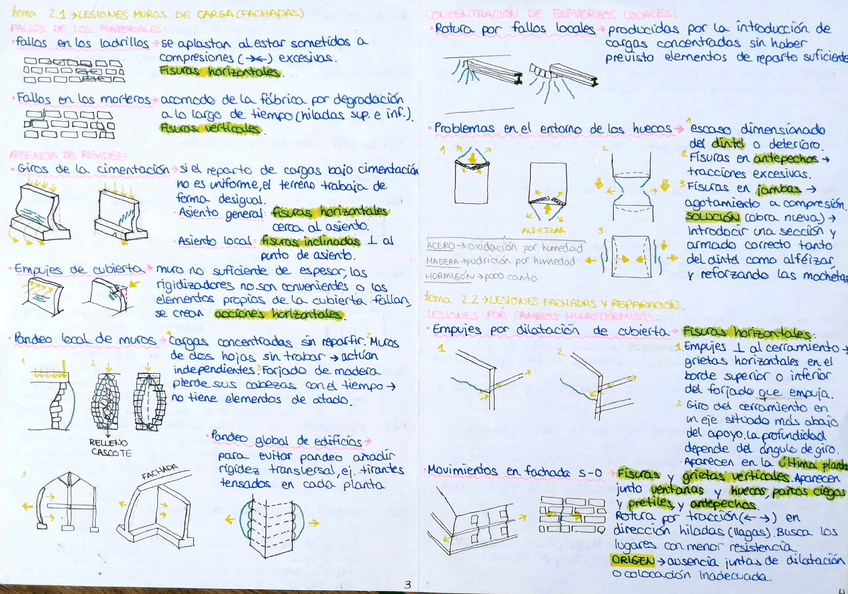 tema 2.1 → LESIONES MUROS DE CARGA (FACHADAS)
FALLOS DE LOS MATERIALES:
· Fallos en los ladrillos → se aplastan al estar sometidos a
compresiones (→←) excesivas.
Fisuras horizontales.
· Fallos en los morteros → acomodo de la fábrica por degradación
a lo largo de tiempo (hiladas sup. e inf.).
Fisuras verticales.
AUSENCIA DE RIGIDEZ:
· Giros de la cimentación → si el reparto de cargas bajo cimentación
no es uniforme, el terreno trabaja de
forma desigual.
· Asiento general: fisuras horizontales
cerca al asiento.
· Asiento local: fisuras inclinadas ⊥ al
punto de asiento.
· Empujes de cubierta → muro no suficiente de espesor, los
rigidizadores no son convenientes o los
elementos propios de la cubierta fallan,
se crean acciones horizontales.
· Pandeo local de muros → 1 Cargas concentradas sin repartir. 2 Muros
de dos hojas sin trabar → actúan
independientes. 3 Forjado de madera
pierde sus cabezas con el tiempo →
no tiene elementos de atado.
1
2
RELLENO
CASCOTE
· Pandeo global de edificios →
para evitar pandeo añadir
rigidez transversal, ej. tirantes
tensados en cada planta
3
FACHADA
3
CONCENTRACIÓN DE ESFUERZOS LOCALES:
· Rotura por fallos locales → producidas por la introducción de
cargas concentradas sin haber
previsto elementos de reparto suficiente
· Problemas en el entorno de los huecos → 1 escaso dimensionado
del dintel o deterioro.
2 Fisuras en antepechos →
tracciones excesivas.
3 Fisuras en jambas →
agotamiento a compresión.
SOLUCIÓN (obra nueva) →
introducir una sección y
armado correcto tanto
del dintel como alféizar,
y reforzando las mochetas
1
ALFEIZAR
2
3
ACERO → oxidación por humedad
MADERA → pudrición por humedad
HORMIGÓN → poco canto
tema 2.2 → LESIONES FACHADAS Y REPARACIÓN.
LESIONES POR CAMBIOS HIGROTÉRMICOS:
· Empujes por dilatación de cubierta → Fisuras horizontales:
1 Empujes ⊥ al cerramiento →
grietas horizontales en el
borde superior o inferior
del forjado que empuja.
2 Giro del cerramiento en
un eje situado más abajo
del apoyo, la profundidad
depende del ángulo de giro.
Aparecen en la última planta
1
2
· Movimientos en fachada S-O → Fisuras y grietas verticales. Aparecen
junto ventanas y huecos, paños ciegos
y pretiles y antepechos.
Rotura por tracción (← →) en
dirección hiladas (llagas). Busca los
lugares con menor resistencia.
ORIGEN → ausencia juntas de dilatación
o colocación inadecuada.
4